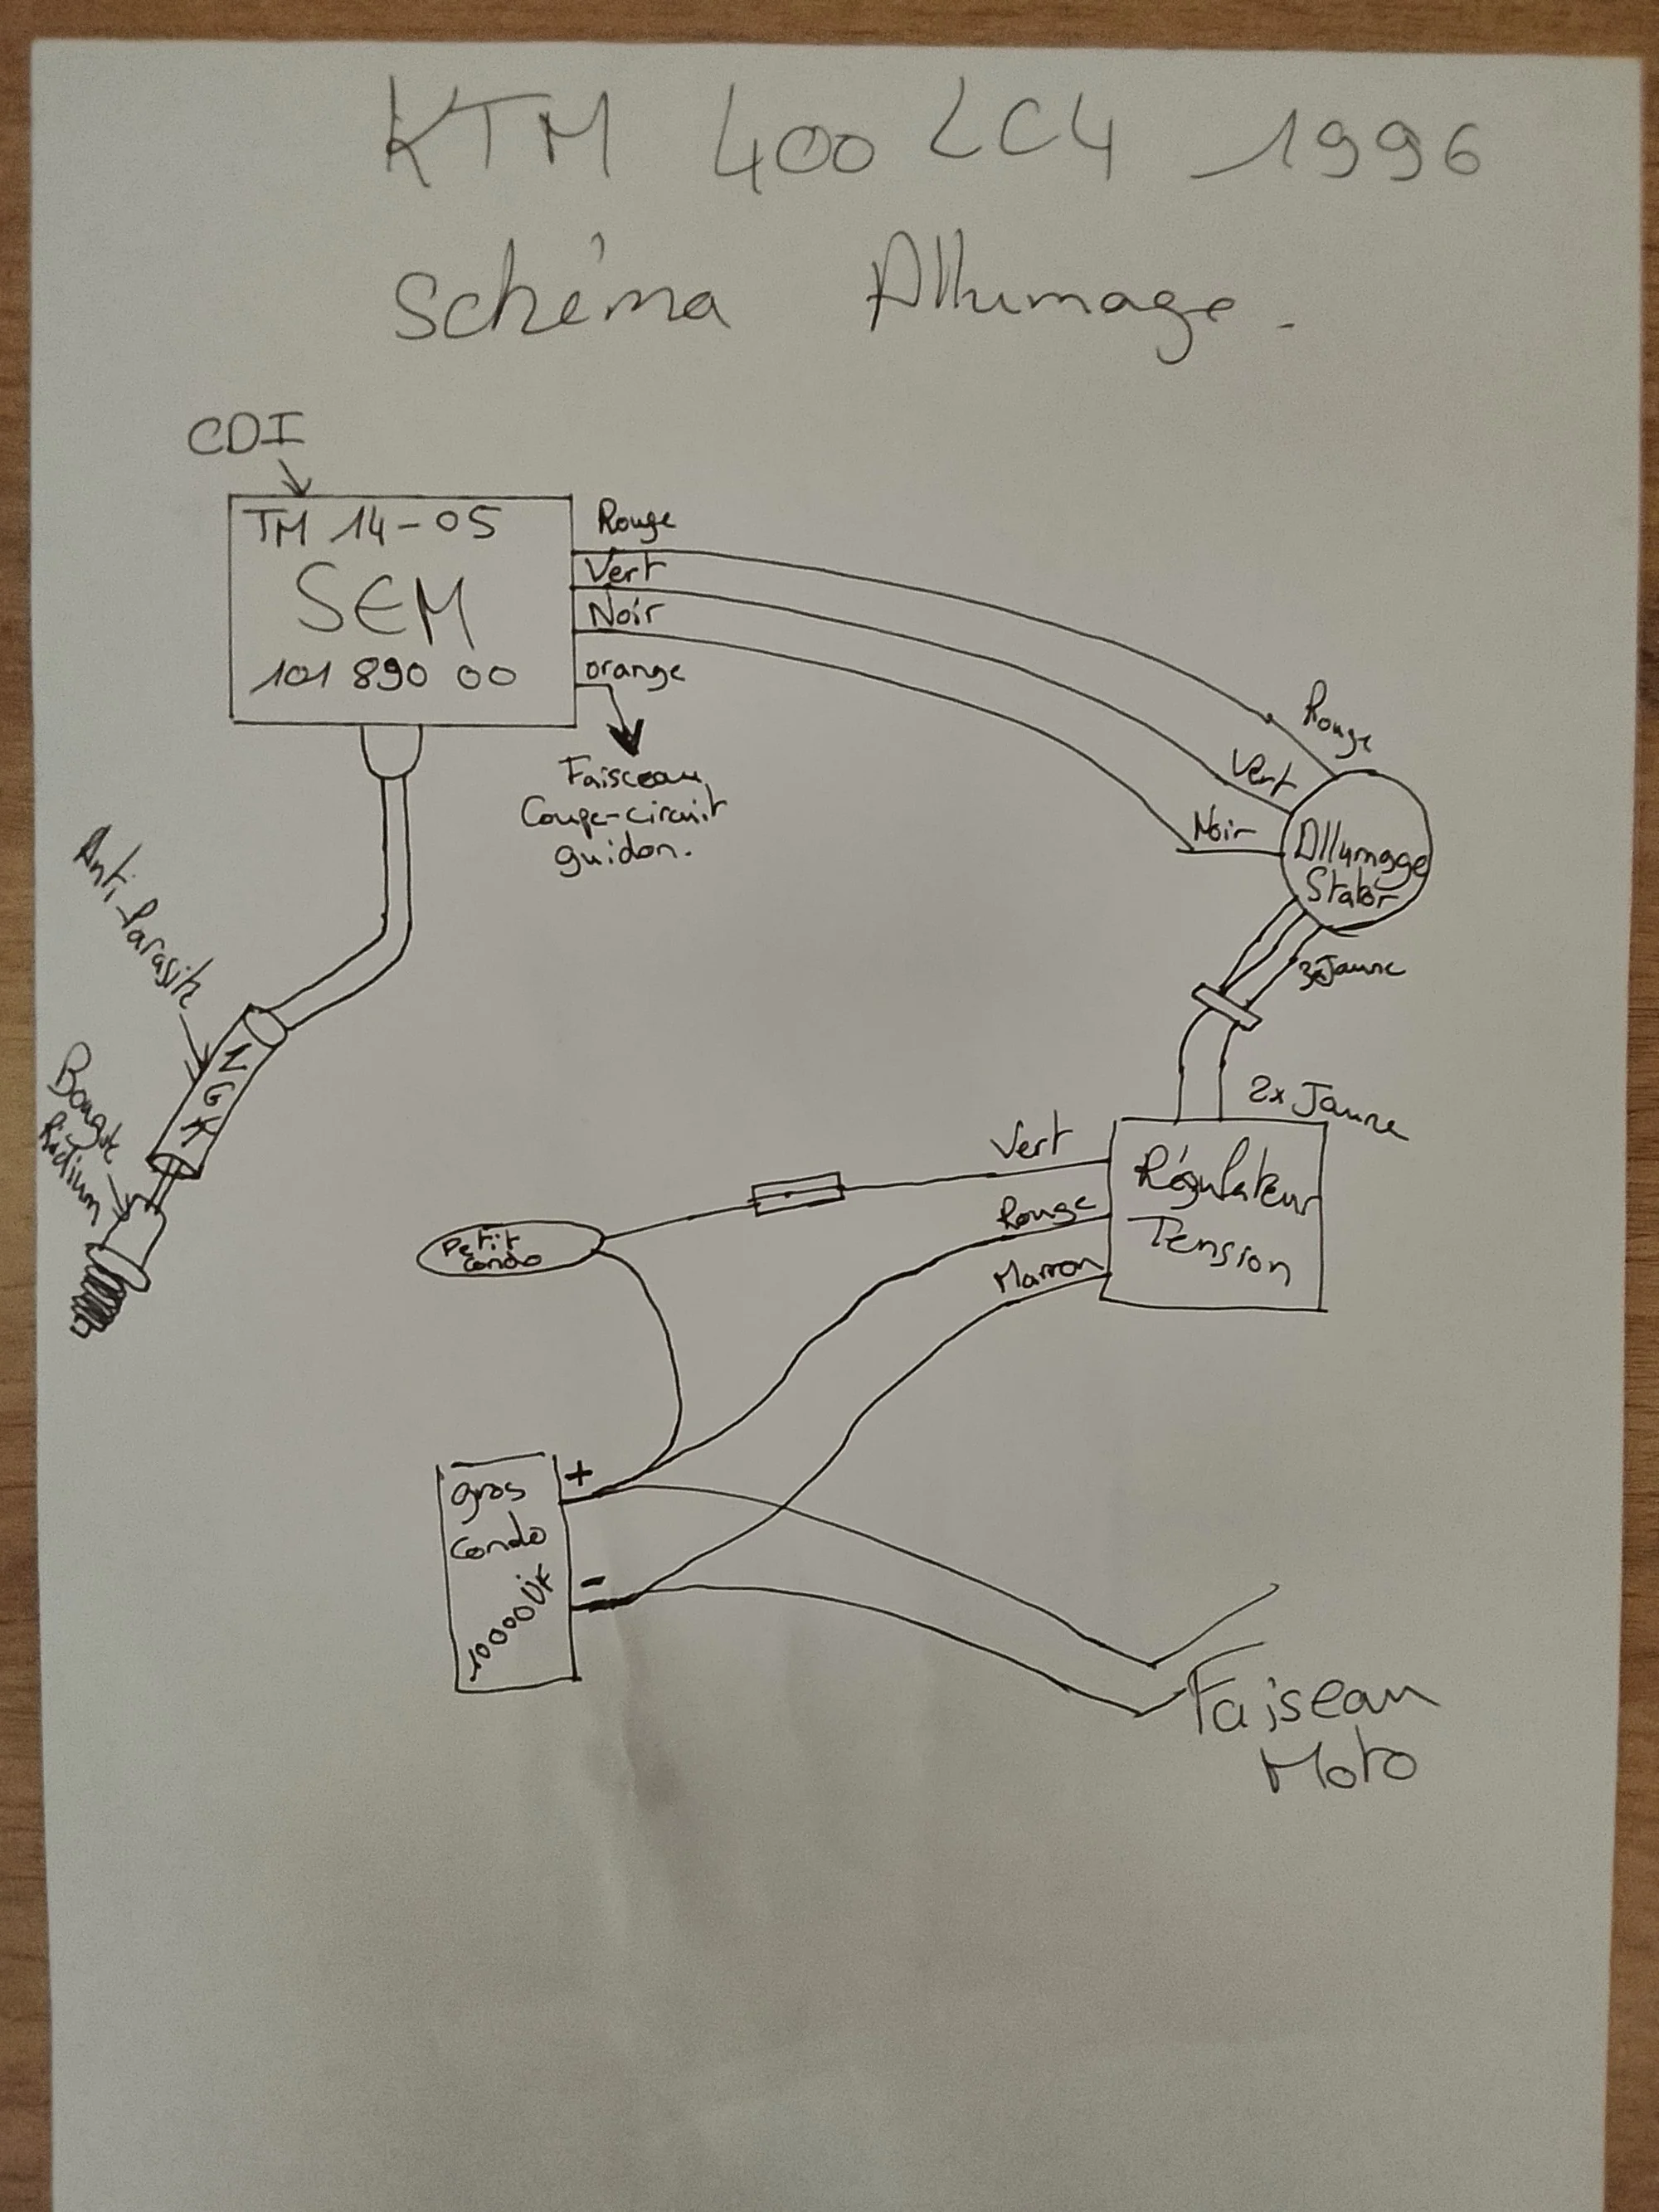 KTM 400 LC4 1996
Schéma Allumage.
CDI
TM 14-05
SEM
101 890 00
Rouge
Vert
Noir
orange
Faisceau
Coupe-circuit
guidon.
Rouge
Vert
Noir
Allumage
Stator
3xJaune
2x Jaune
Anti-Parasite
NGK
Bougie
Vert
Rouge
Marron
Régulateur
Tension
Petit
Condo
gros
Condo
+
-
Faiseau
Moto